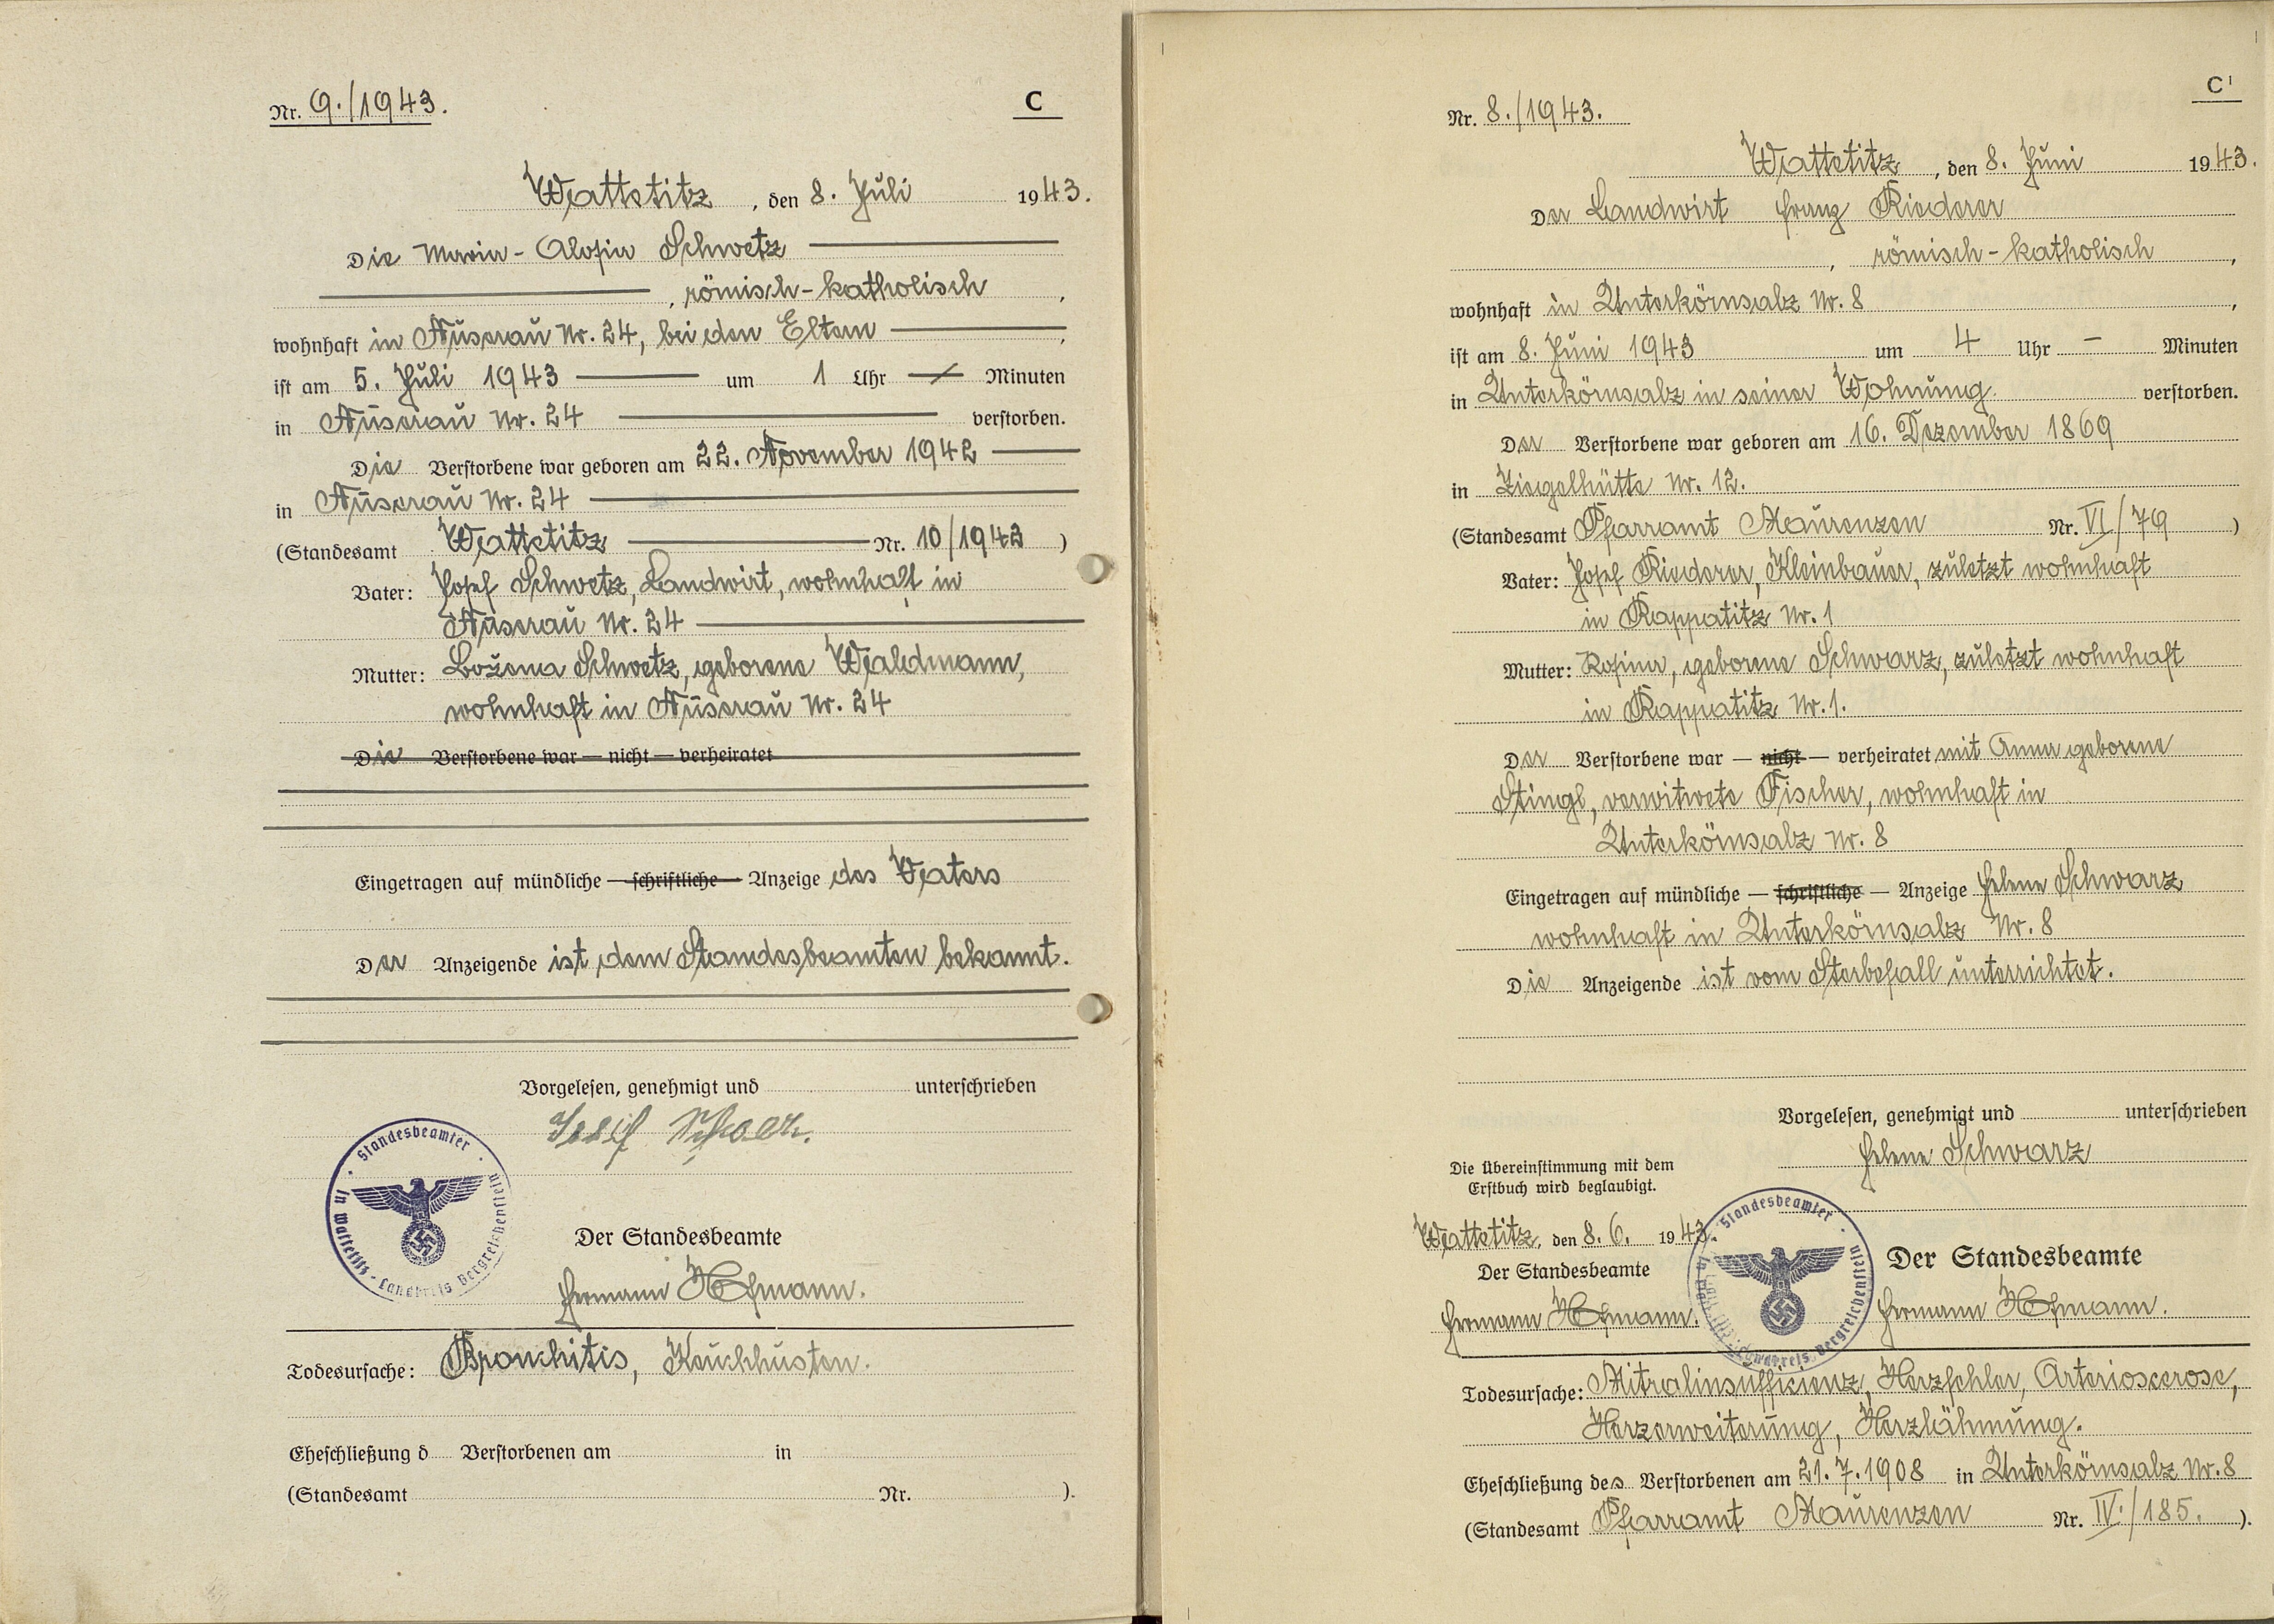 Nr. 9./1943.
C
Wattetitz, den 8. Juli 1943.
Die Maria-Aloisia Schwetz
, römisch-katholisch,
wohnhaft in Auserau Nr. 24, bei den Eltern,
ist am 5. Juli 1943 um 1 Uhr — Minuten
in Auserau Nr. 24 verstorben.
Die Verstorbene war geboren am 22. November 1942
in Auserau Nr. 24
(Standesamt Wattetitz Nr. 10/1942)
Vater: Josef Schwetz, Landwirt, wohnhaft in
Auserau Nr. 24
Mutter: Božena Schwetz, geborene Waldmann,
wohnhaft in Auserau Nr. 24
Die Verstorbene war — nicht — verheiratet
Eingetragen auf mündliche — schriftliche — Anzeige des Vaters
Der Anzeigende ist dem Standesbeamten bekannt.
Vorgelesen, genehmigt und unterschrieben
Josef
Standesbeamter
in Wattetitz - Landkreis Bergreichenstein
Der Standesbeamte
Hermann Hofmann.
Todesursache: Bronchitis, Keuchhusten.
Eheschließung d Verstorbenen am in
(Standesamt Nr. ).
C¹
Nr. 8./1943.
Wattetitz, den 8. Juni 1943.
Der Landwirt Franz Riederer
, römisch-katholisch,
wohnhaft in Unterkörnsalz Nr. 8,
ist am 8. Juni 1943 um 4 Uhr — Minuten
in Unterkörnsalz in seiner Wohnung verstorben.
Der Verstorbene war geboren am 16. Dezember 1869
in Ziegelhütte Nr. 12.
(Standesamt Pfarramt Maurenzen Nr. VI/79)
Vater: Josef Riederer, Kleinbauer, zuletzt wohnhaft
in Rappatitz Nr. 1
Mutter: Rosina, geborene Schwarz, zuletzt wohnhaft
in Rappatitz Nr. 1.
Der Verstorbene war — nicht — verheiratet mit Anna geborene
Stingl, verwitwete Fischer, wohnhaft in
Unterkörnsalz Nr. 8
Eingetragen auf mündliche — schriftliche — Anzeige Helene Schwarz
wohnhaft in Unterkörnsalz Nr. 8
Die Anzeigende ist vom Sterbefall unterrichtet.
Vorgelesen, genehmigt und unterschrieben
Helene Schwarz
Die Übereinstimmung mit dem
Erstbuch wird beglaubigt.
Wattetitz, den 8. 6. 1943.
Der Standesbeamte
Hermann Hofmann.
Standesbeamter
Landkreis Bergreichenstein
Der Standesbeamte
Hermann Hofmann.
Todesursache: Mitralinsuffizienz, Herzfehler, Arterioscerose,
Herzerweiterung, Herzlähmung.
Eheschließung des Verstorbenen am 21. 7. 1908 in Unterkörnsalz Nr. 8
(Standesamt Pfarramt Maurenzen Nr. IV./185.).